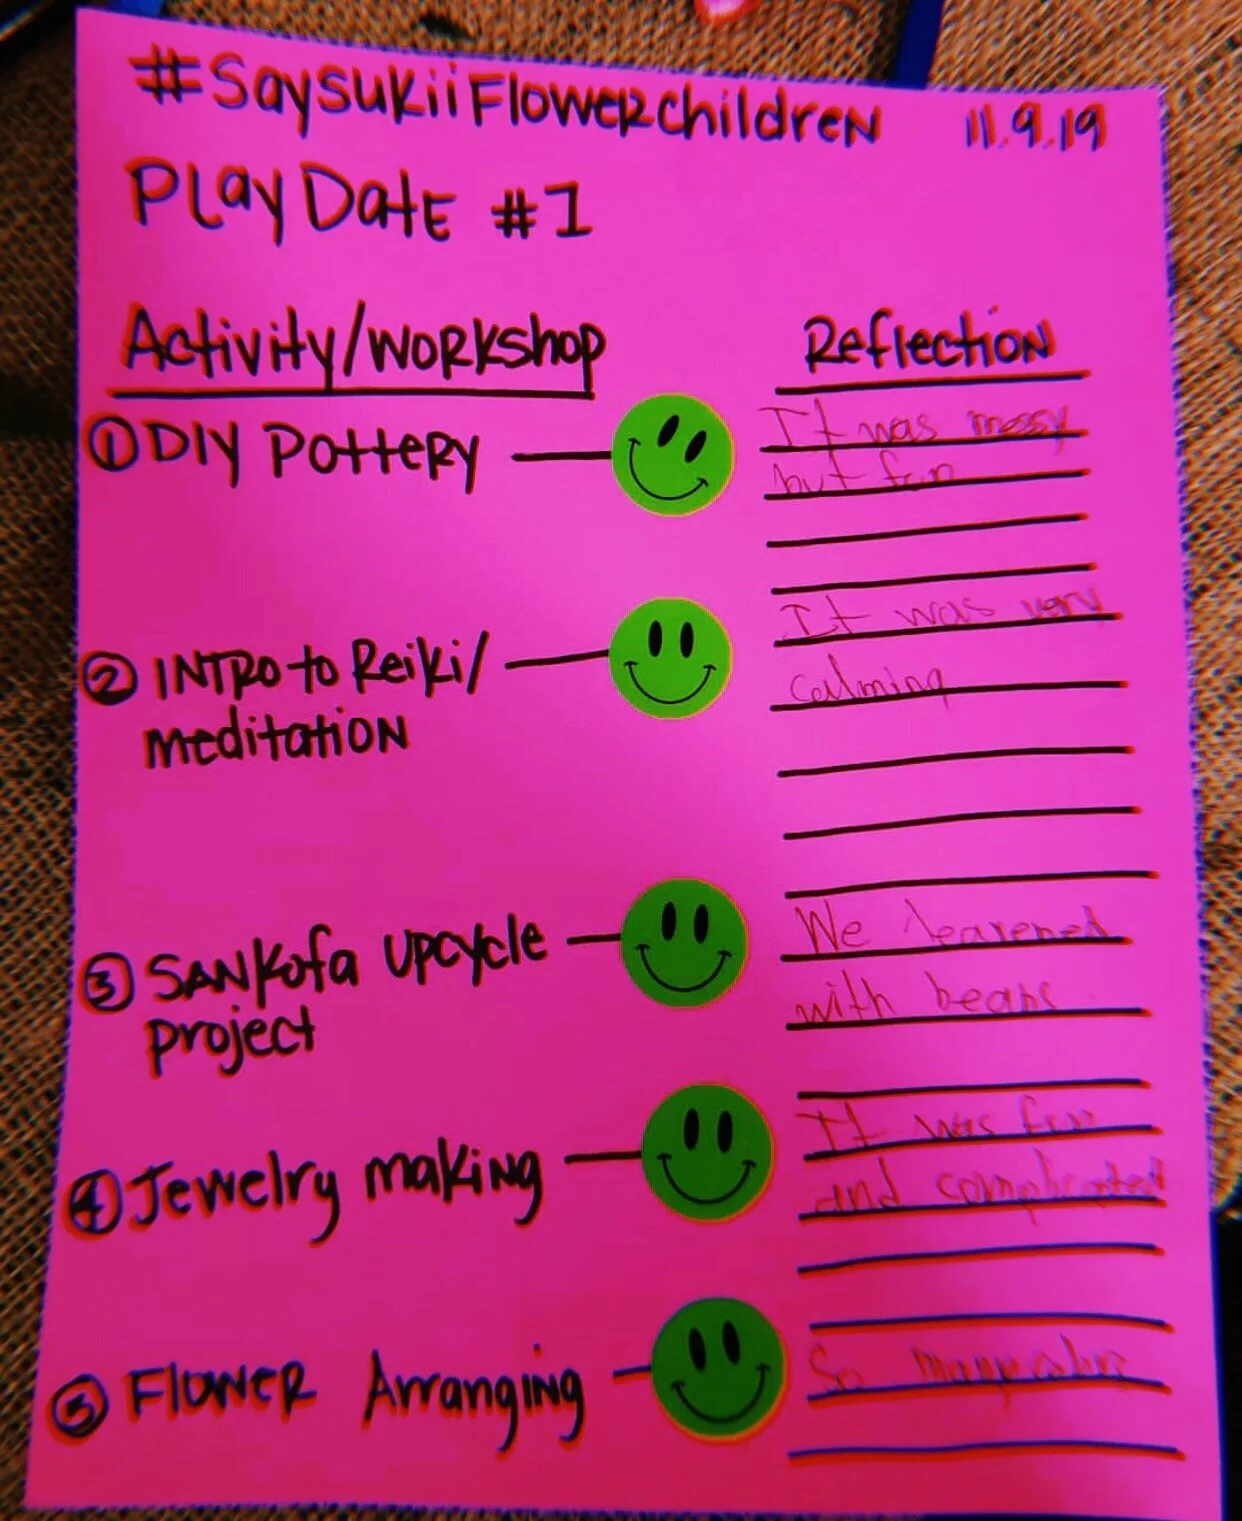 #SaysukiiFlowerchildren 11.9.19
Play Date #1
Activity/workshop Reflection
① DIY Pottery It was messy
but fun
② INTRO to Reiki/ It was very
meditation calming
③ SANKofa upcycle We learened
project with beans
④ Jewelry making It was fun
and complicated
⑤ Flower Arranging So many colors